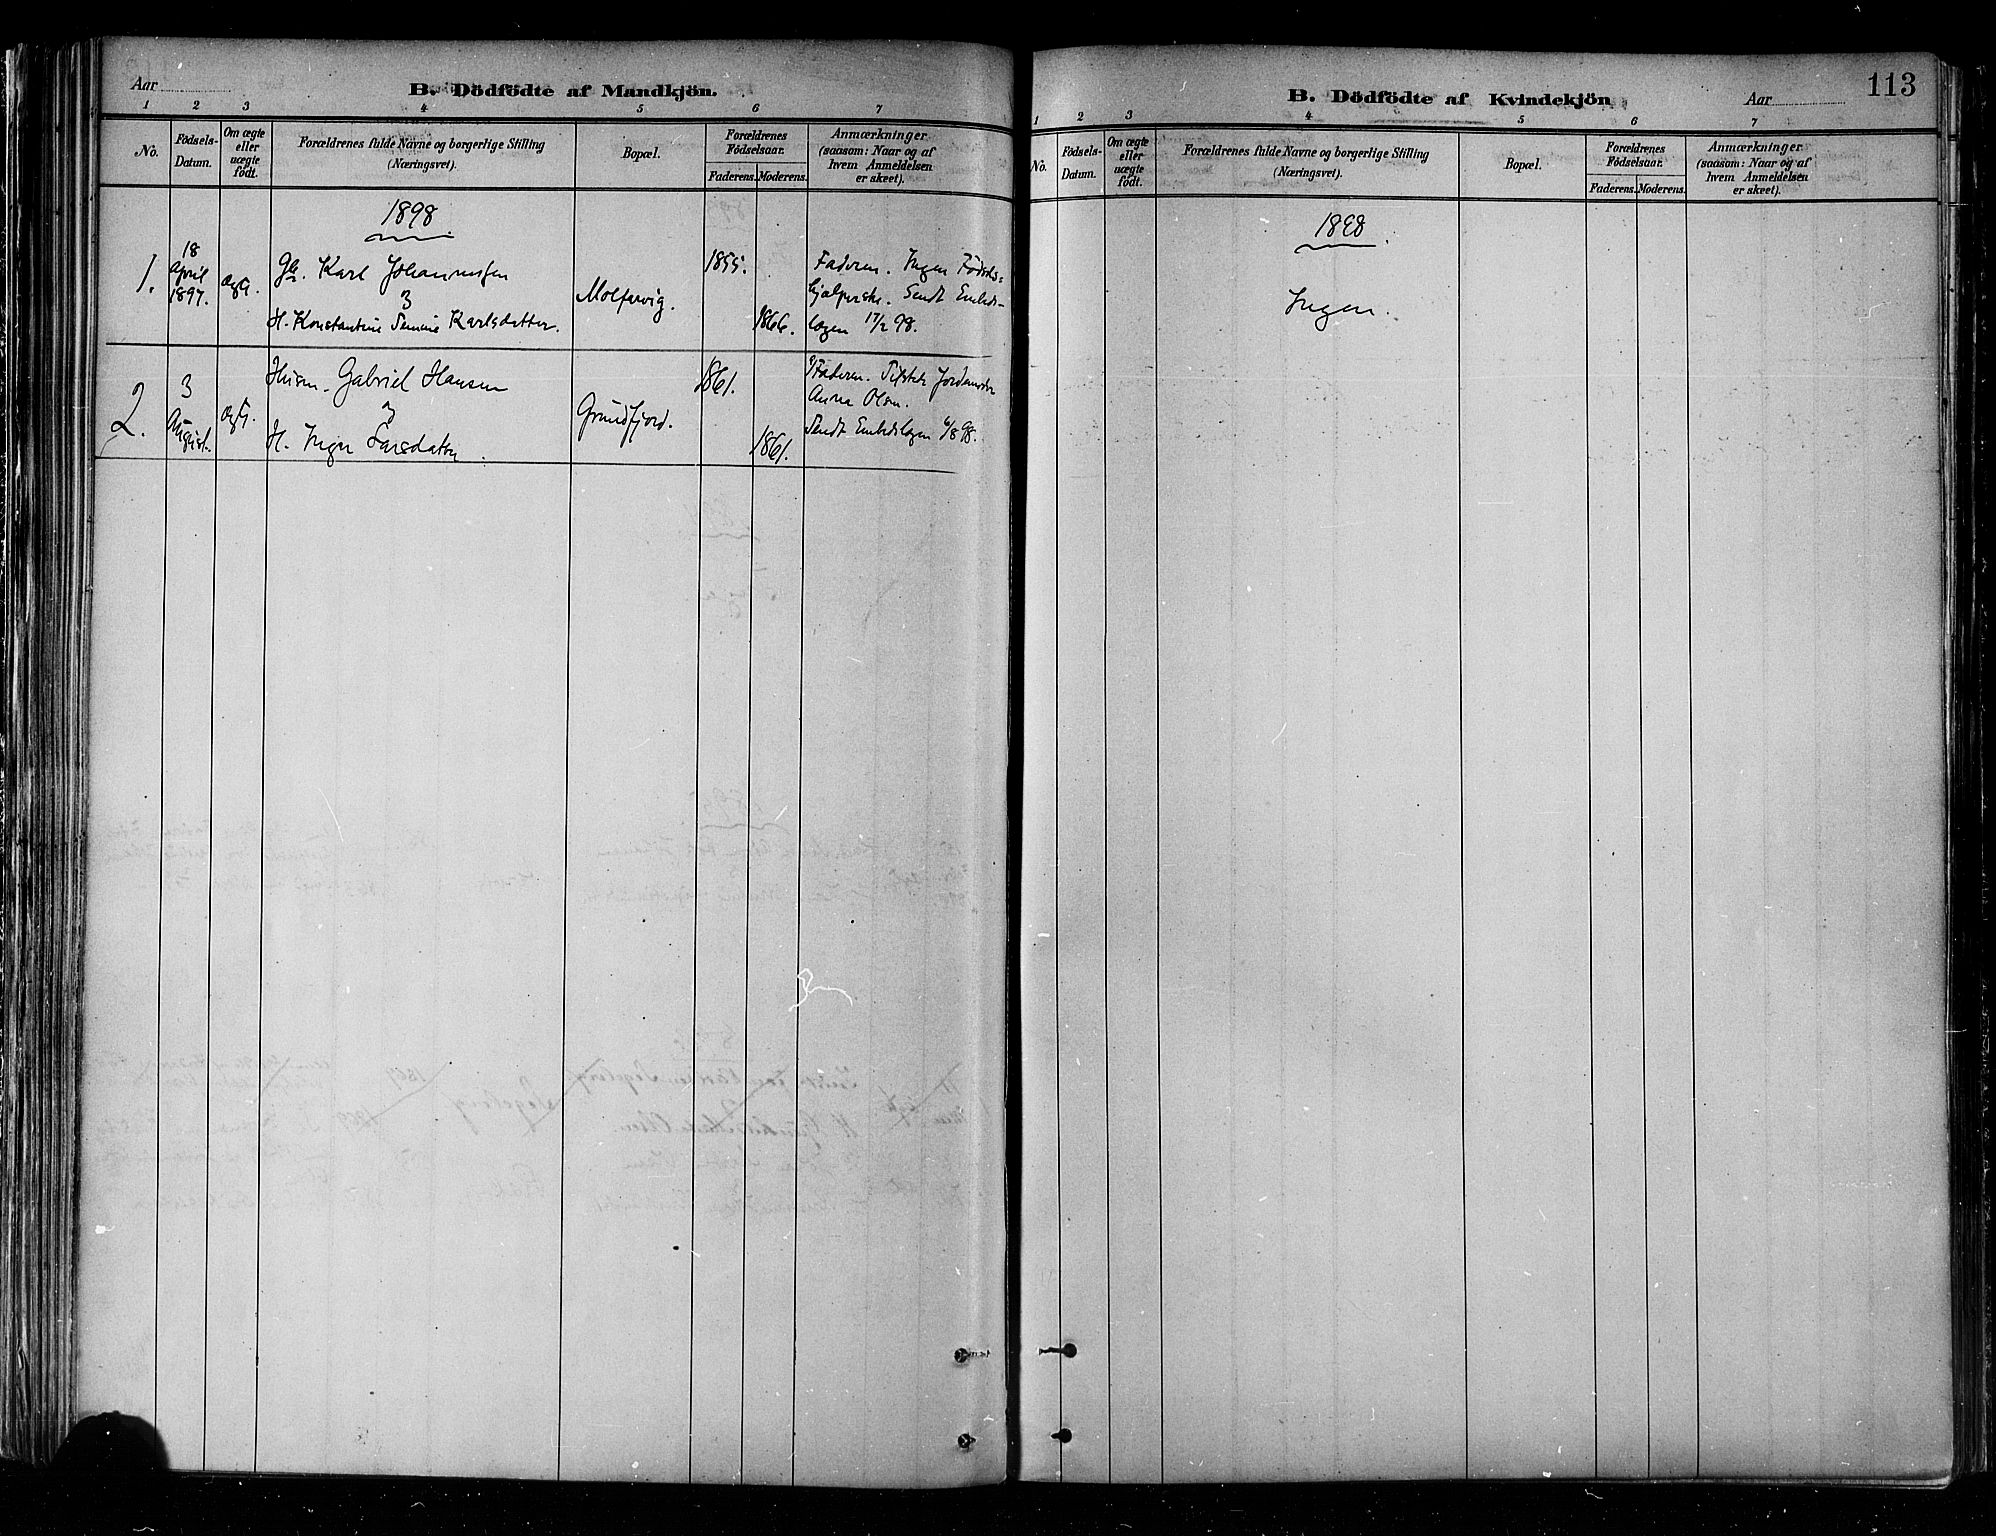 Aar
B. Dödfödte af Mandkjön.
1 2 3 4 5 6 7
No.
Födsels-
Datum.
Om ægte
eller
uægte
födt.
Forældrenes fulde Navne og borgerlige Stilling
(Næringsvei).
Bopæl.
Forældrenes
Födselsaar.
Faderens. Moderens.
Anmærkninger
(saasom: Naar og af
hvem Anmeldelsen
er skeet).
1898
1.
18
April
1897.
ægt.
Karl Johannesen
H. Konstantine Karlsdatter.
1855.
1866.
Faderen. Ingen Fødsels-
hjælperske. Sendt Embeds-
lægen 17/2 98.
2.
3
August.
ægt.
Husm. Gabriel Hansen
H. Inger Larsdatter
Grundfjord.
1861.
1861.
Faderen. Jordmoder
Anna Olsen.
Sendt Embedslægen 6/8 98.
B. Dödfödte af Kvindekjön
Aar
113
1 2 3 4 5 6 7
No.
Födsels-
Datum.
Om ægte
eller
uægte
födt.
Forældrenes fulde Navne og borgerlige Stilling
(Næringsvei).
Bopæl.
Forældrenes
Födselsaar.
Faderens. Moderens.
Anmærkninger
(saasom: Naar og af
hvem Anmeldelsen
er skeet).
1898.
Ingen.